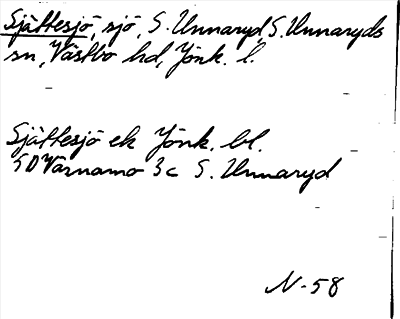 Sjättesjö, sjö, S. Unnaryd, S. Unnaryds
sn, Västbo hd, Jönk. l.
Sjättesjö ek Jönk. bl.
5D Värnamo 3c S. Unnaryd
N-58